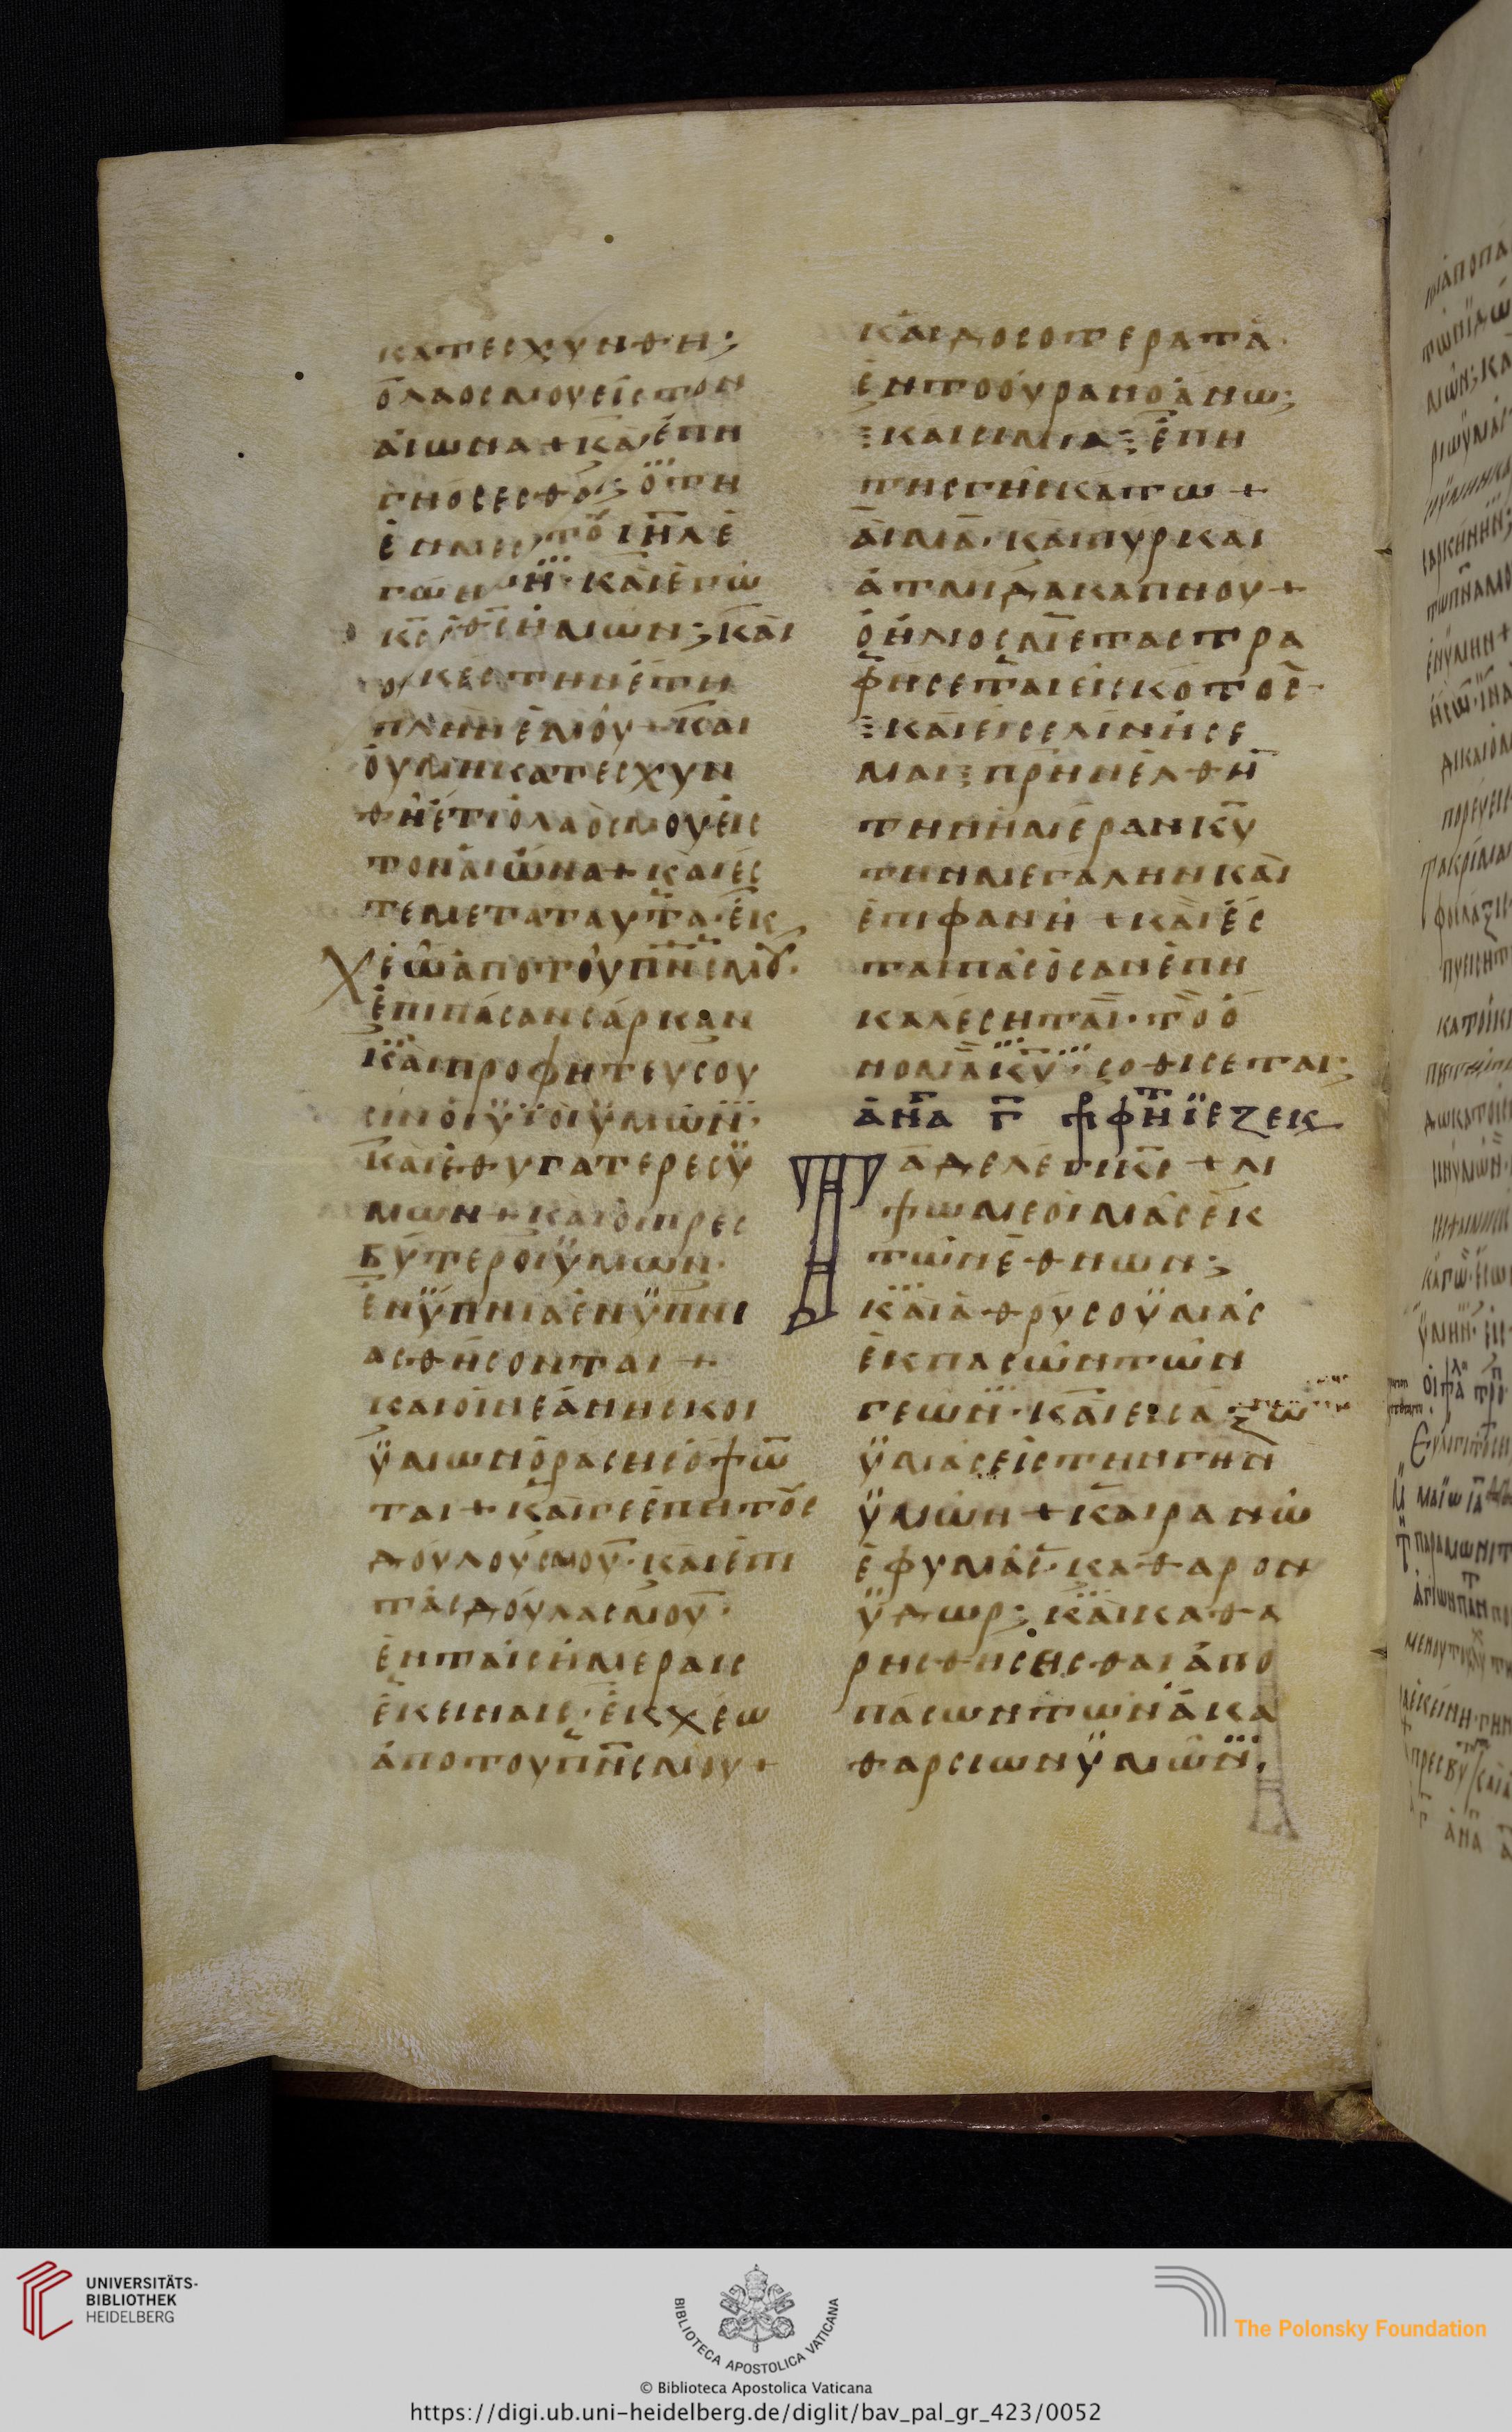 κατεσχυνθη·
ὁ λαος μου εἰς τον
αἰωνα + και ἐπη
γνοσεσθαι· ὁτη
ἐν μεσω του ιηλ ἐ
γω ειμη· και ἐγω
κς ὁ θς ημων; και
οὐκ ἐστην ἐτη
πλην ἐμου + και
οὐ μη κατεσχυν
θη ἐτι ὁ λαος μου εἰς
τον αἰωνα + και ἐς
τε μετα ταυτα· ἐκ
χεω ἀπο του πνς μου·
ἐπι πασαν σαρκαν
και προφητευσου
σιν οἱ ϋϊοι ϋμων·
και ἐ θυγατερες ϋ
μων + και οἱ πρεσ
βυτεροι ϋμων·
ἐνϋπνια ἐνϋπνι
ασθησονται +
και οἱ νεανησκοι
ϋμων ὁρασησ ὀψω
ται + και γε ἐπη τους
δουλους μου· και ἐπι
τας δουλας μου·
ἐν ταις ἡμεραις
ἐκειναις· ἐκχεω
ἀπο του πνς μου +
και δοσο τερατα·
ἐν το οὐρανο ἀνω;
και σιμια ἐπη
της γης κατω +
αἱμα· και πυρ και
ἀτμιδα καπνου +
ὁ ἡλιος μεταστρα
φησεται εἰς κοτος
και εἰ σελινη ἰς ε
μα πρην ἐλθη
την ἡμεραν κυ
την μεγαλην και
ἐπιφανη + και ἐς
ται πας ὁς αν ἐπη
καλεσηται· το ὀ
νομα κυ· σοθισεται·
ἀνα γ πρφητ ϊεζεκ
Ταδε λεγι κς + λι
ψωμε οἱμας ἐκ
των ἐθνων;
και ἀθρυσο ϋμας
ἐκ πασων των
γεων· και εισαξω
ϋμας εἰς την γην
ϋμων + και ρανω
ἐφ υμας· καθαρον
ϋδωρ; και καθα
ρησθησεσθαι ἀπο
πασων των ἀκα
θαρσιων ϋμων·
UNIVERSITÄTS-
BIBLIOTHEK
HEIDELBERG
BIBLIOTECA APOSTOLICA VATICANA
The Polonsky Foundation
© Biblioteca Apostolica Vaticana
https://digi.ub.uni-heidelberg.de/diglit/bav_pal_gr_423/0052